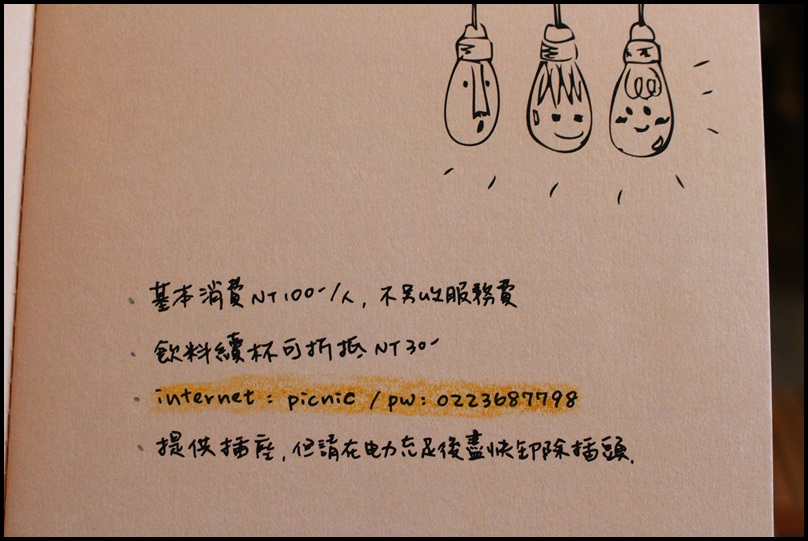 基本消費NT100-/人, 不另收服務費
飲料續杯可折抵NT30-
internet : picnic / pw: 0223687798
提供插座, 但請在电力充足後盡快卸除插頭.